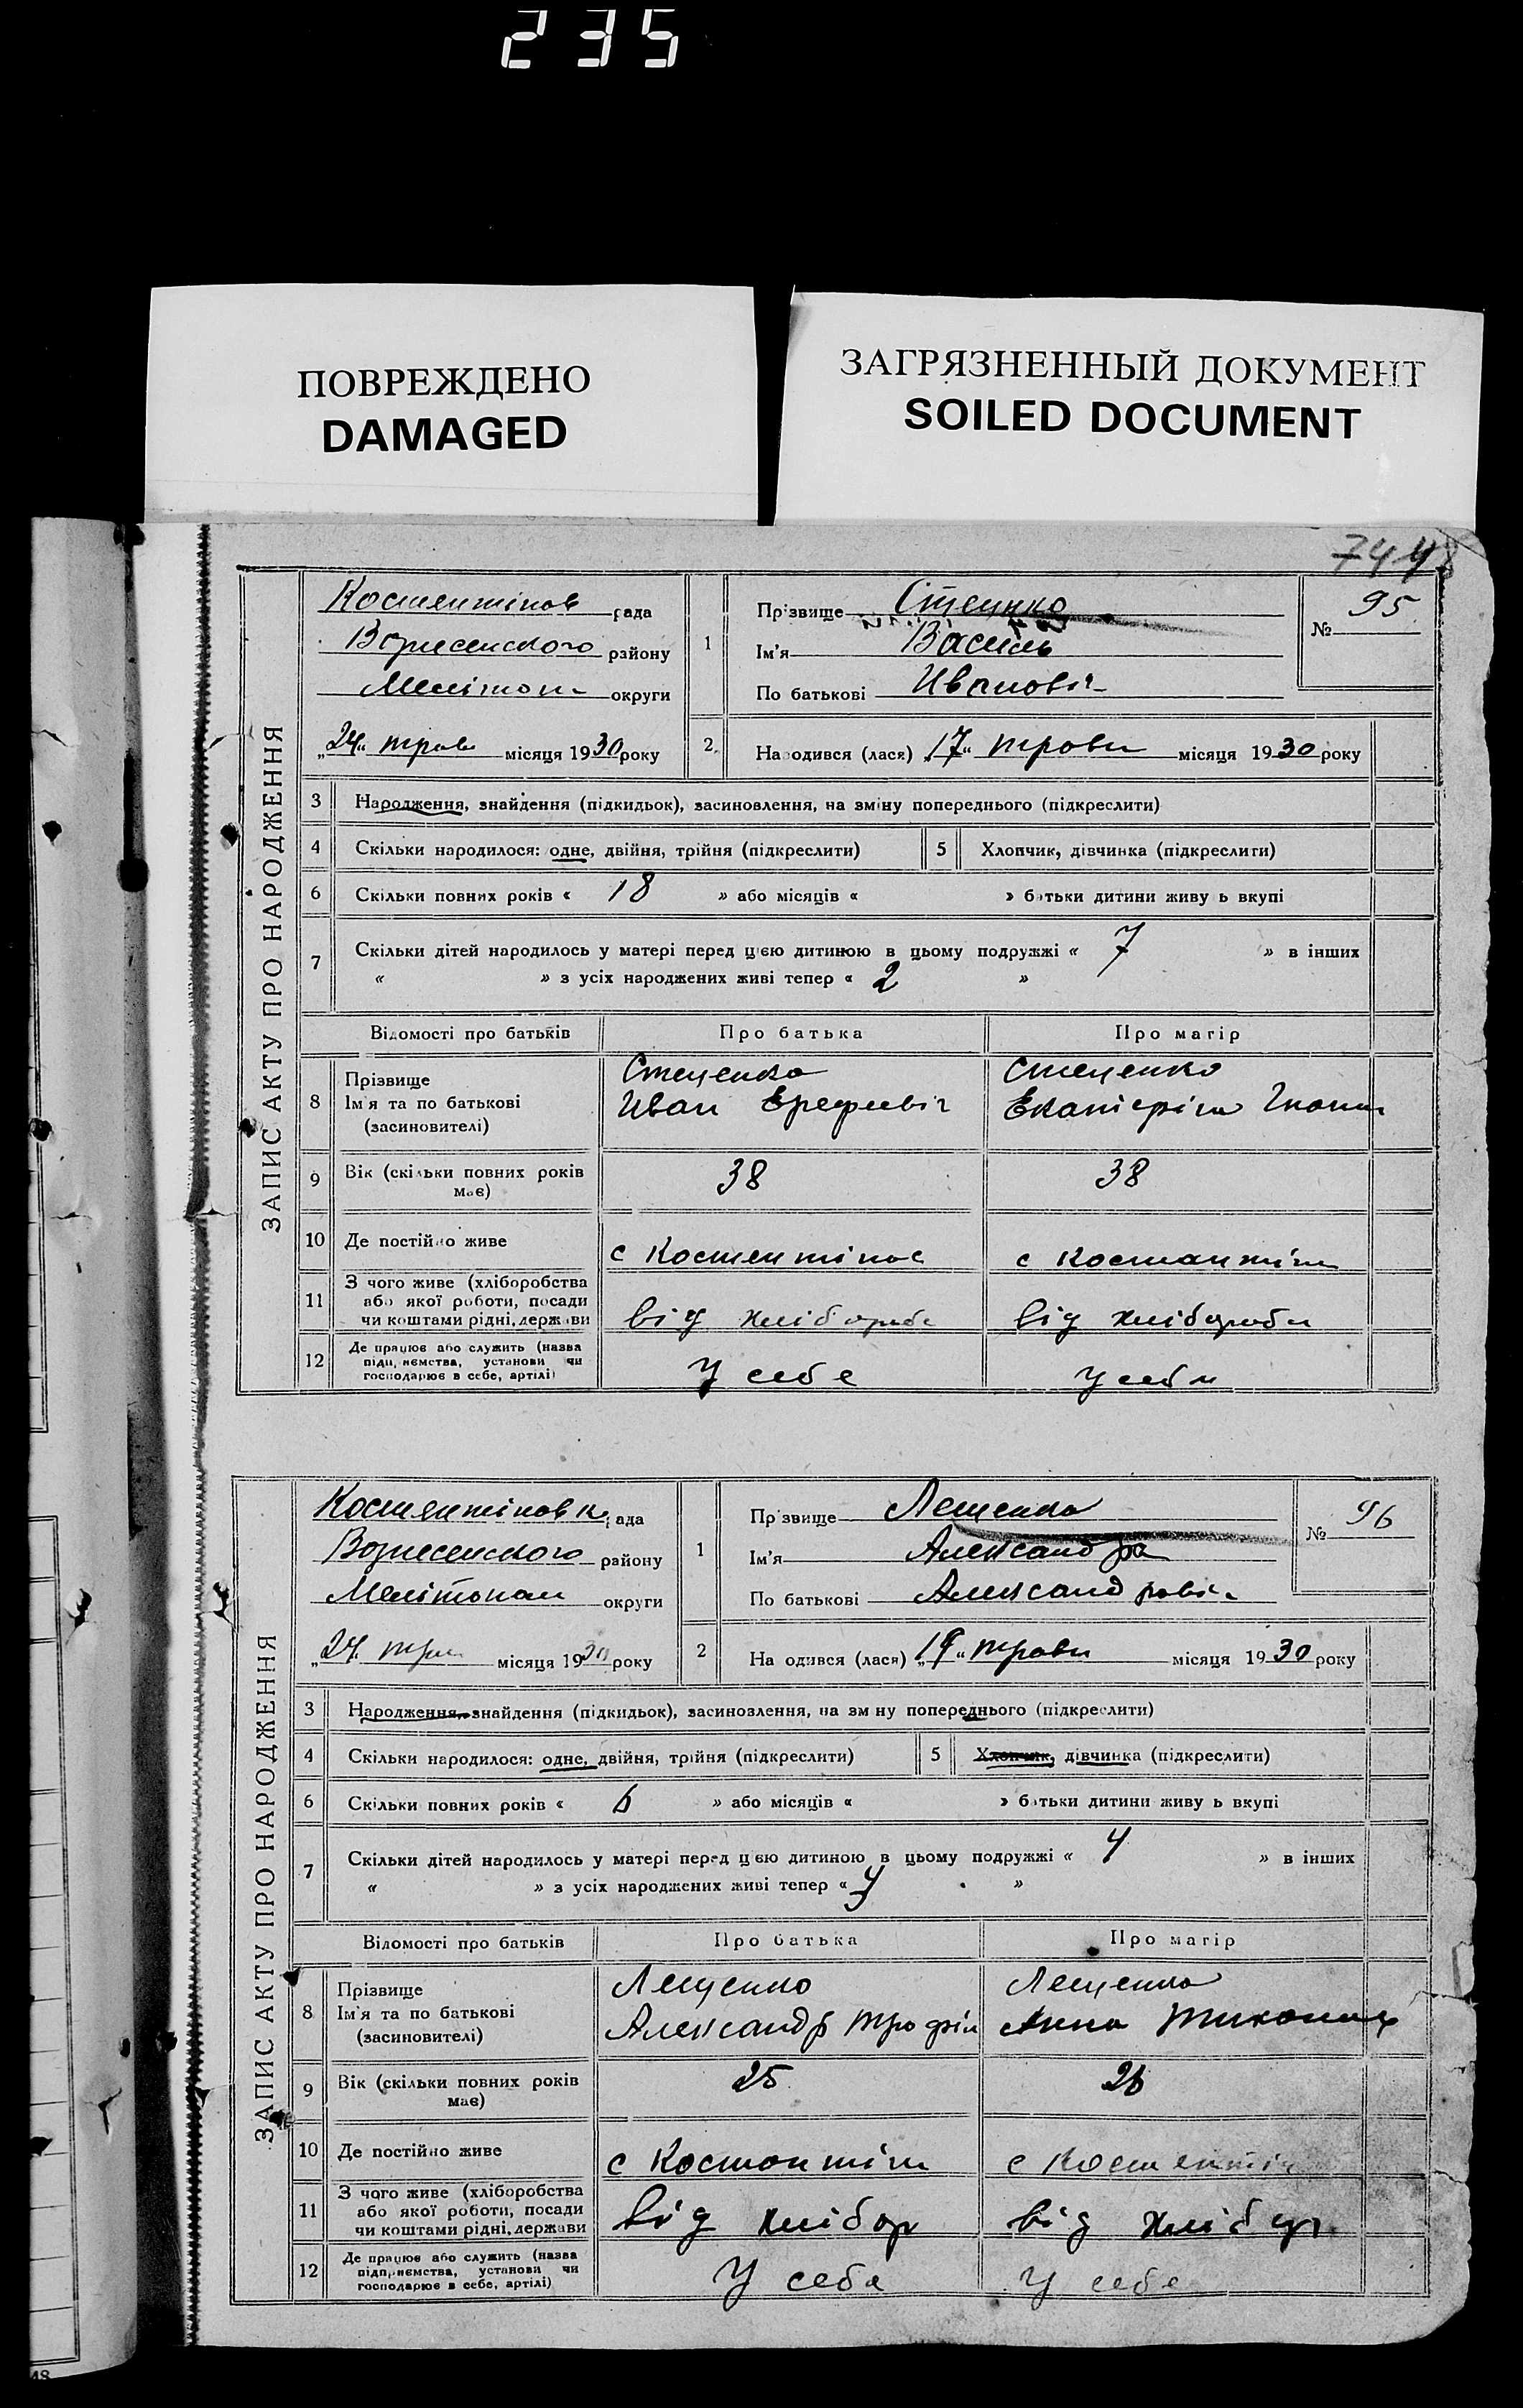 235
ПОВРЕЖДЕНО
DAMAGED
ЗАГРЯЗНЕННЫЙ ДОКУМЕНТ
SOILED DOCUMENT
ЗАПИС АКТУ ПРО НАРОДЖЕННЯ
Костентінов рада
Вознесенского району
округи
„24“ трав місяця 1930 року
1
Прізвище Стеценко
Ім'я Василь
По батькові Иванович
№ 95
2
Народився (лася) „17“ трови місяця 1930 року
3 Народження, знайдення (підкидьок), засиновлення, на зміну попереднього (підкреслити)
4 Скільки народилося: одне, двійня, трійня (підкреслити) 5 Хлопчик, дівчинка (підкреслити)
6 Скільки повних років « 18 » або місяців « » батьки дитини живу ь вкупі
7 Скільки дітей народилось у матері перед цією дитиною в цьому подружжі « 7 » в інших
« » з усіх народжених живі тепер « 2 »
Відомості про батьків Про батька Про матір
8 Прізвище
Ім'я та по батькові
(засиновителі)
Стеценко
Иван
Стеценко
Екатіріна
9 Вік (скільки повних років має) 38 38
10 Де постійно живе с Костентінов с Костантін
11 З чого живе (хліборобства
або якої роботи, посади
чи коштами рідні, держави
від хлібороб від хлібороби
12 Де працює або служить (назва
підприємства, установи чи
господарює в себе, артілі)
У себе У себе
ЗАПИС АКТУ ПРО НАРОДЖЕННЯ
Костентіновк рада
Вознесенского району
Мелітопал округи
„24“ трав місяця 1930 року
1
Прізвище Лещенко
Ім'я Александра
По батькові Александровіч
№ 96
2
На одився (лася) „19“ трави місяця 1930 року
3 Народження, знайдення (підкидьок), засиновлення, на зм ну попереднього (підкреслити)
4 Скільки народилося: одне, двійня, трійня (підкреслити) 5 Хлопчик, дівчинка (підкреслити)
6 Скільки повних років « 6 » або місяців « » батьки дитини живу ь вкупі
7 Скільки дітей народилось у матері перед цією дитиною в цьому подружжі « 4 » в інших
« » з усіх народжених живі тепер « »
Відомості про батьків Про батька Про матір
8 Прізвище
Ім'я та по батькові
(засиновителі)
Лещенко
Александр Трофім
Лещенко
Анна
9 Вік (скільки повних років має) 25 26
10 Де постійно живе с Костонтін с Костентін
11 З чого живе (хліборобства
або якої роботи, посади
чи коштами рідні, держави
від хлібор від хлібор
12 Де працює або служить (назва
підприємства, установи чи
господарює в себе, артілі)
У себе У себе